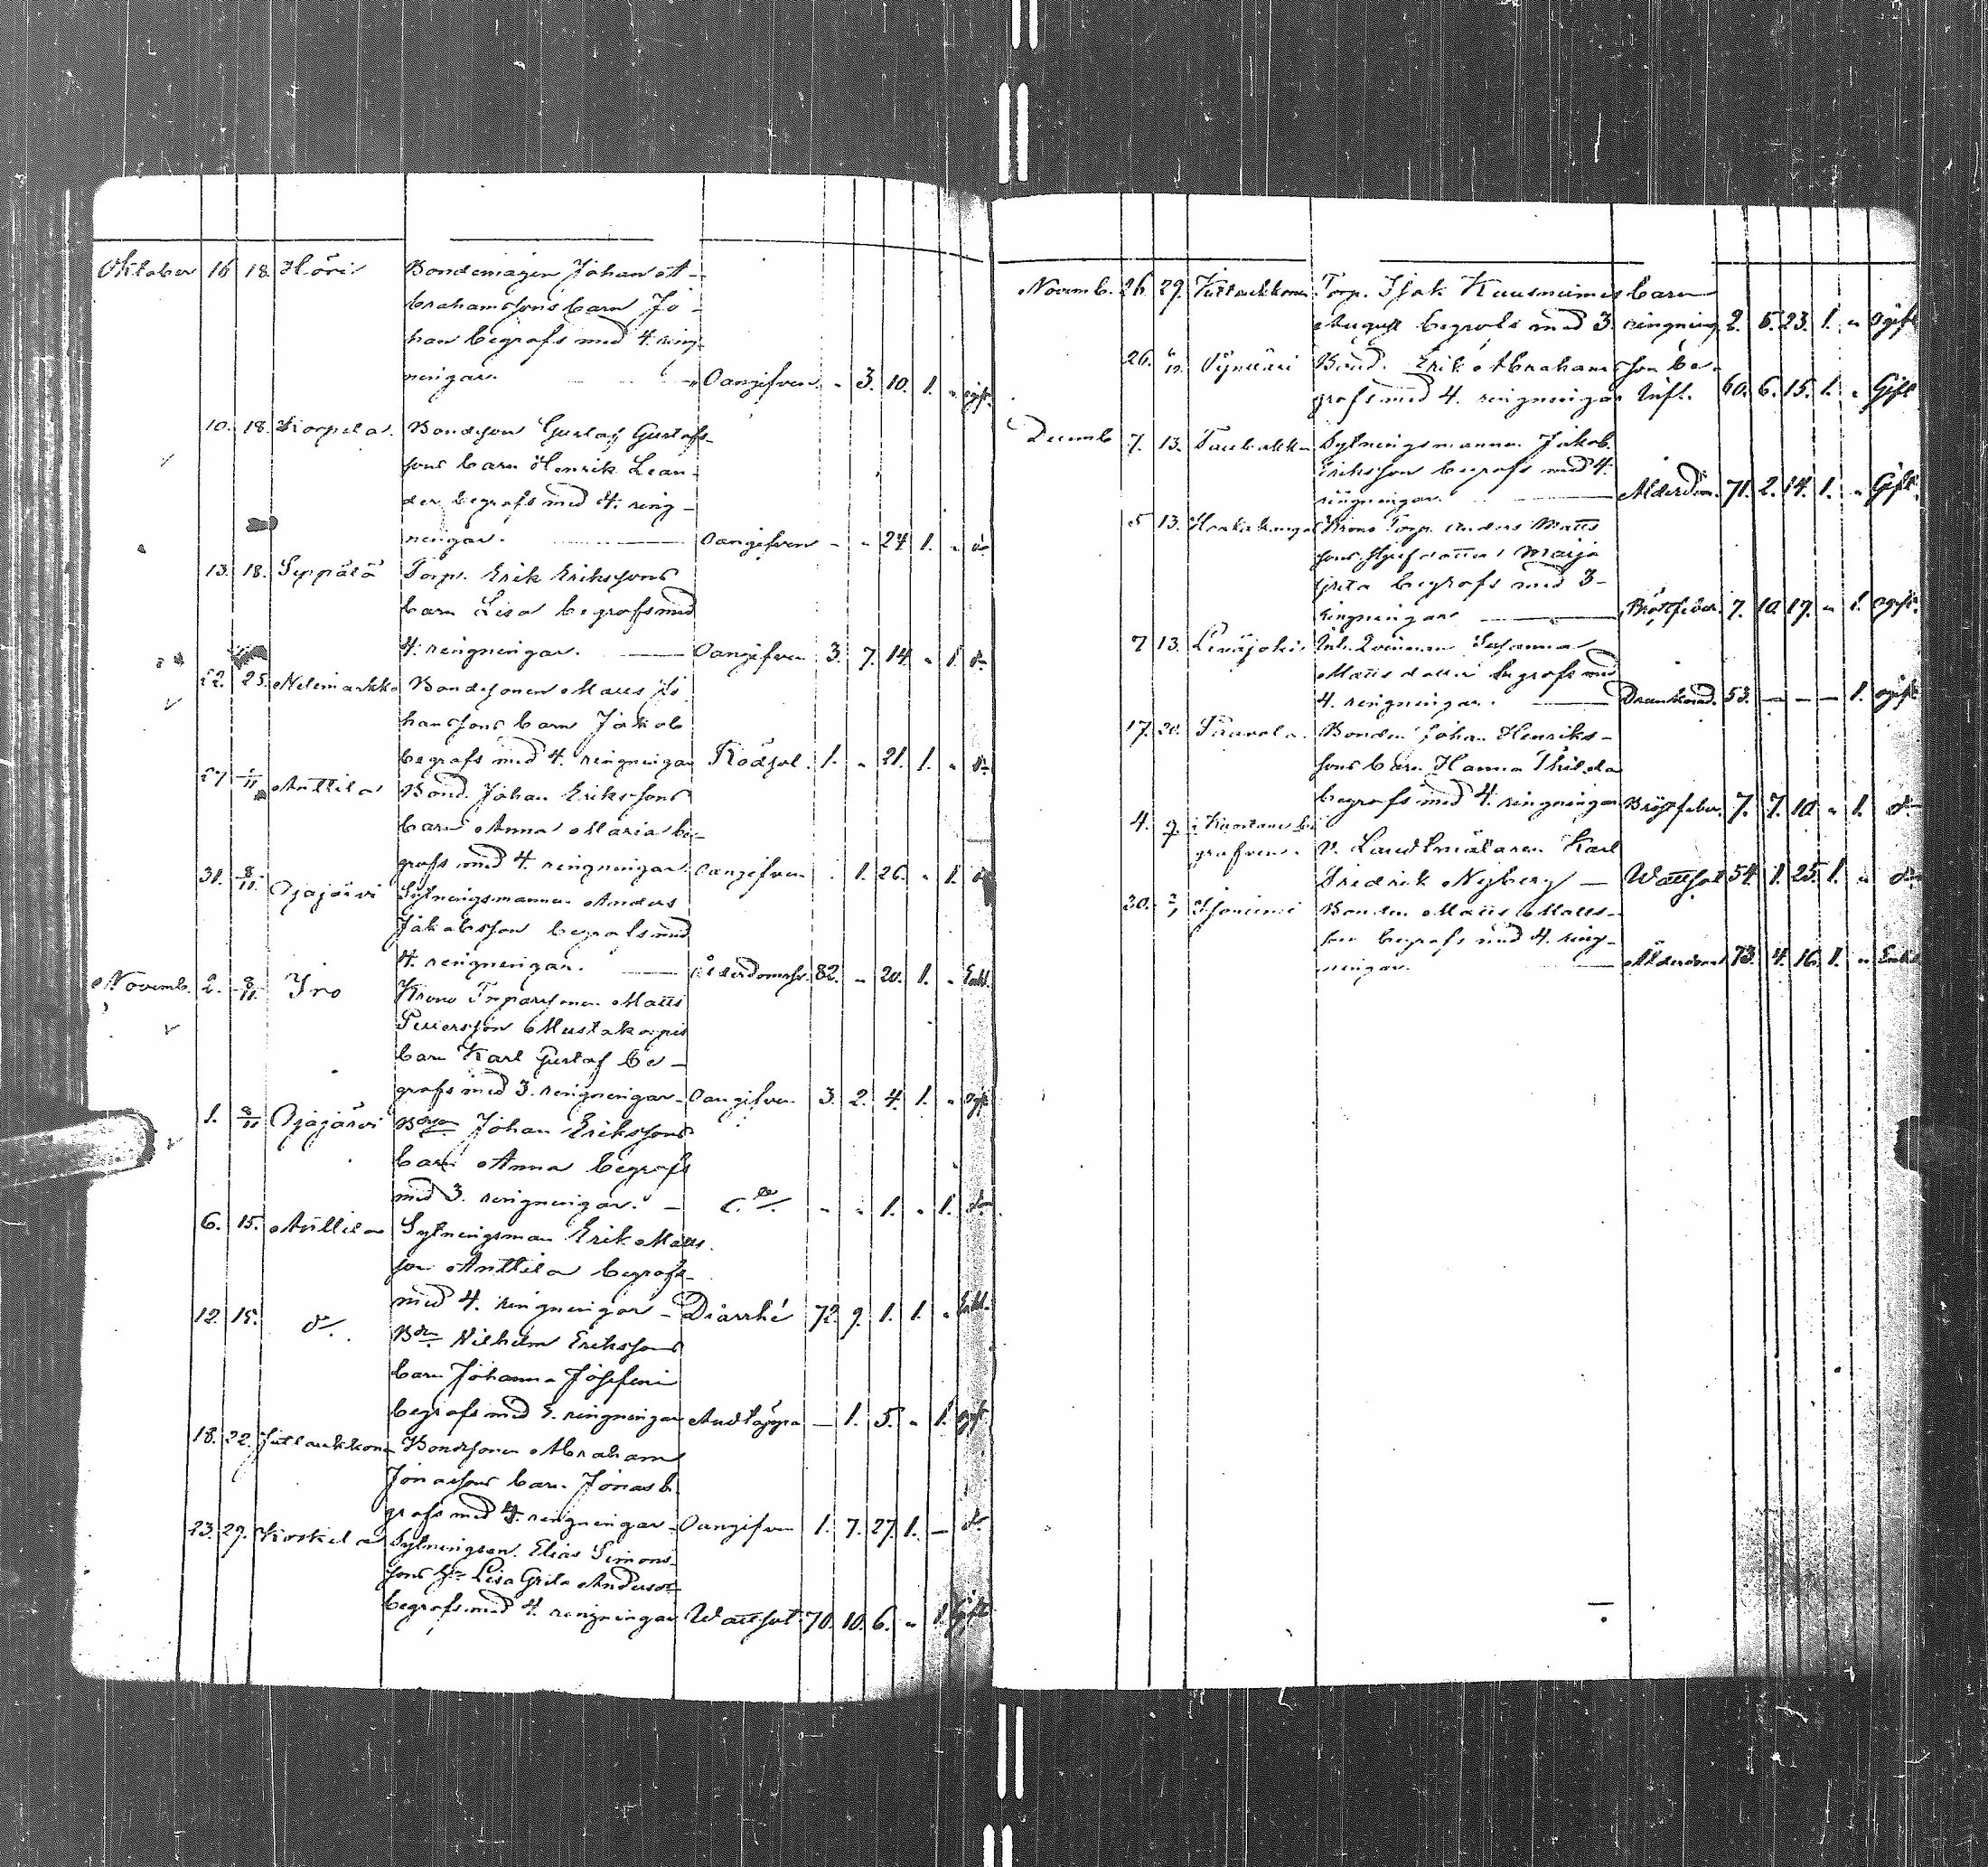 Oktober 16 18. Höri Bondemågen Johan A-
brahamssons barn Jo-
han begrofs med 4. ring-
ningar. Oangifven - 3. 10. 1. " ogift.
10. 18. Korpela. Bondeson Gustaf Gustafs-
sons barn Henrik Lean-
der begrofs med 4. ring-
ningar. Oangifven - " 24 1. " do
13. 18. Seppälä Torp. Erik Erikssons
barn Lisa begrofs med
4. ringningar. Oangifven 3. 7. 14. " 1. do
22. 25. Nelimarkka Bondesonen Matts Jo
hanssons barn Jakob
begrofs med 4. ringningar Rödsot. 1. " 21. 1. " do
27 1/11 Anttila Bond. Johan Erikssons
barn Anna Maria be-
grofs med 4 ringningar. Oangifven . 1. 26. " 1. do
31. 8/11. Ojajärvi Sytningsmannen Anders
Jakobsson begrofs med
4. ringningar. Ålderdomssv. 82. " 20. 1. " Enkl.
Novemb. 2. 8/11. Iro Krono Torparsonen Matts
Petersson Mustakorpis
barn Karl Gustaf be-
grofs med 3. ringningar - Oangifven 3. 2. 4. 1. " Ogift
1. 8/11 Ojajärvi Bdeson Johan Erikssons
barn Anna begrofs
med 3. ringningar. - do - " 1. " 1. do
6. 15. Anttila Sytningsman Erik Matts
son Anttila begrofs
med 4. ringningar - Diarrhé 72. 9. 1. 1. " Enkl.
12. 15. do. Bdn Wilhelm Erikssons
barn Johanna Josefina
begrofs med ringningar Andtäppa - 1. 5. " 1. ogft.
18. 22. Juttuukkonen Bondesonen Abraham
Jonassons barn Jonas b.
grofs med 4. ringningar - Oangifven 1. 7. 27. 1. - do
23. 29. Koskela Sytningsm. Elias Simons-
sons Hu Lisa Greta Andersdr
begrofs med 4. ringningar Wattsot 70. 10. 6. " 1. Gift
Novemb. 26. 29. Torp. Isak Kuusniemis barn
August begrofs med 3. ringning 2. 5. 23. 1. " Ogift
26. 6/12 Bond. Erik Abrahamsson be-
grofs med 4. ringningar 60. 6. 15. 1. " Gift
Decemb 7. 13. Sytningsmannen Jakob
Eriksson begrofs med 4.
ringningar. Ålderdom. 71. 2. 14. 1. " Gift.
5 13. Krono Torp. Anders Matts
sons Maija
Greta begrofs med 3-
ringningar Bröstfeber. 7. 10 17. " 1. Ogift.
7 13. Lintijoki Inh. Qvinnan Susanna
Mattsdotter begrofs med
4. ringningar. Drunknad. 53. - - - 1. ogift
17. 20. Taavola. Bonden Johan Henriks-
sons barn Hanna Thilda
begrofs med 4. ringningar Bröstfeber. 7. 7. 10 " 1. do
4. 9. i Kuortane be
grafven. v. Landtmätaren Karl
Fredrik Nyberg - Wattsot 54. 1. 25. 1. " do
30. Isoniemi Bonden Matts Matts-
son begrofs med 4. ring-
ningar. Ålderdom 73. 4. 16. 1. " Enkl